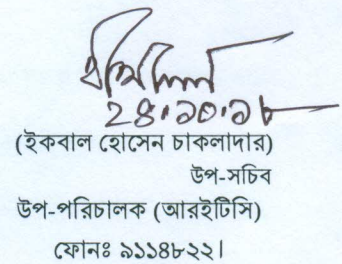 ২৪.১০.১৮
(ইকবাল হোসেন চাকলাদার)
উপ-সচিব
উপ-পরিচালক (আরইটিসি)
ফোনঃ ৯১১৪৮২২।